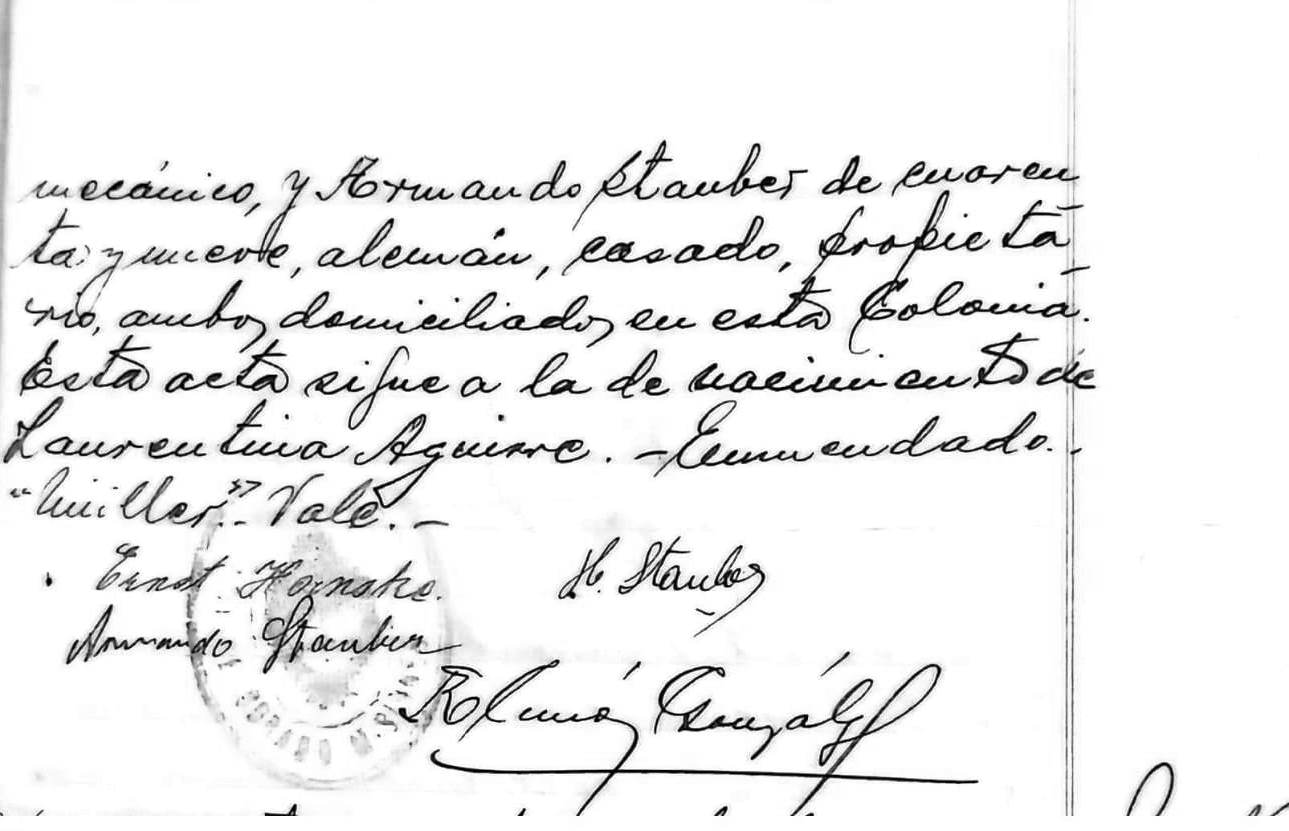 mecánico, y Armando Stauber de cuaren
ta y nueve, alemán, casado, propieta
rio, ambos domiciliados en esta Colonia.
Esta acta sigue a la de nacimiento de
Laurentina Aguirre. - Enmendado. -
"Müller". Vale. -
Ernst H. Stauber
Armando Stauber
González